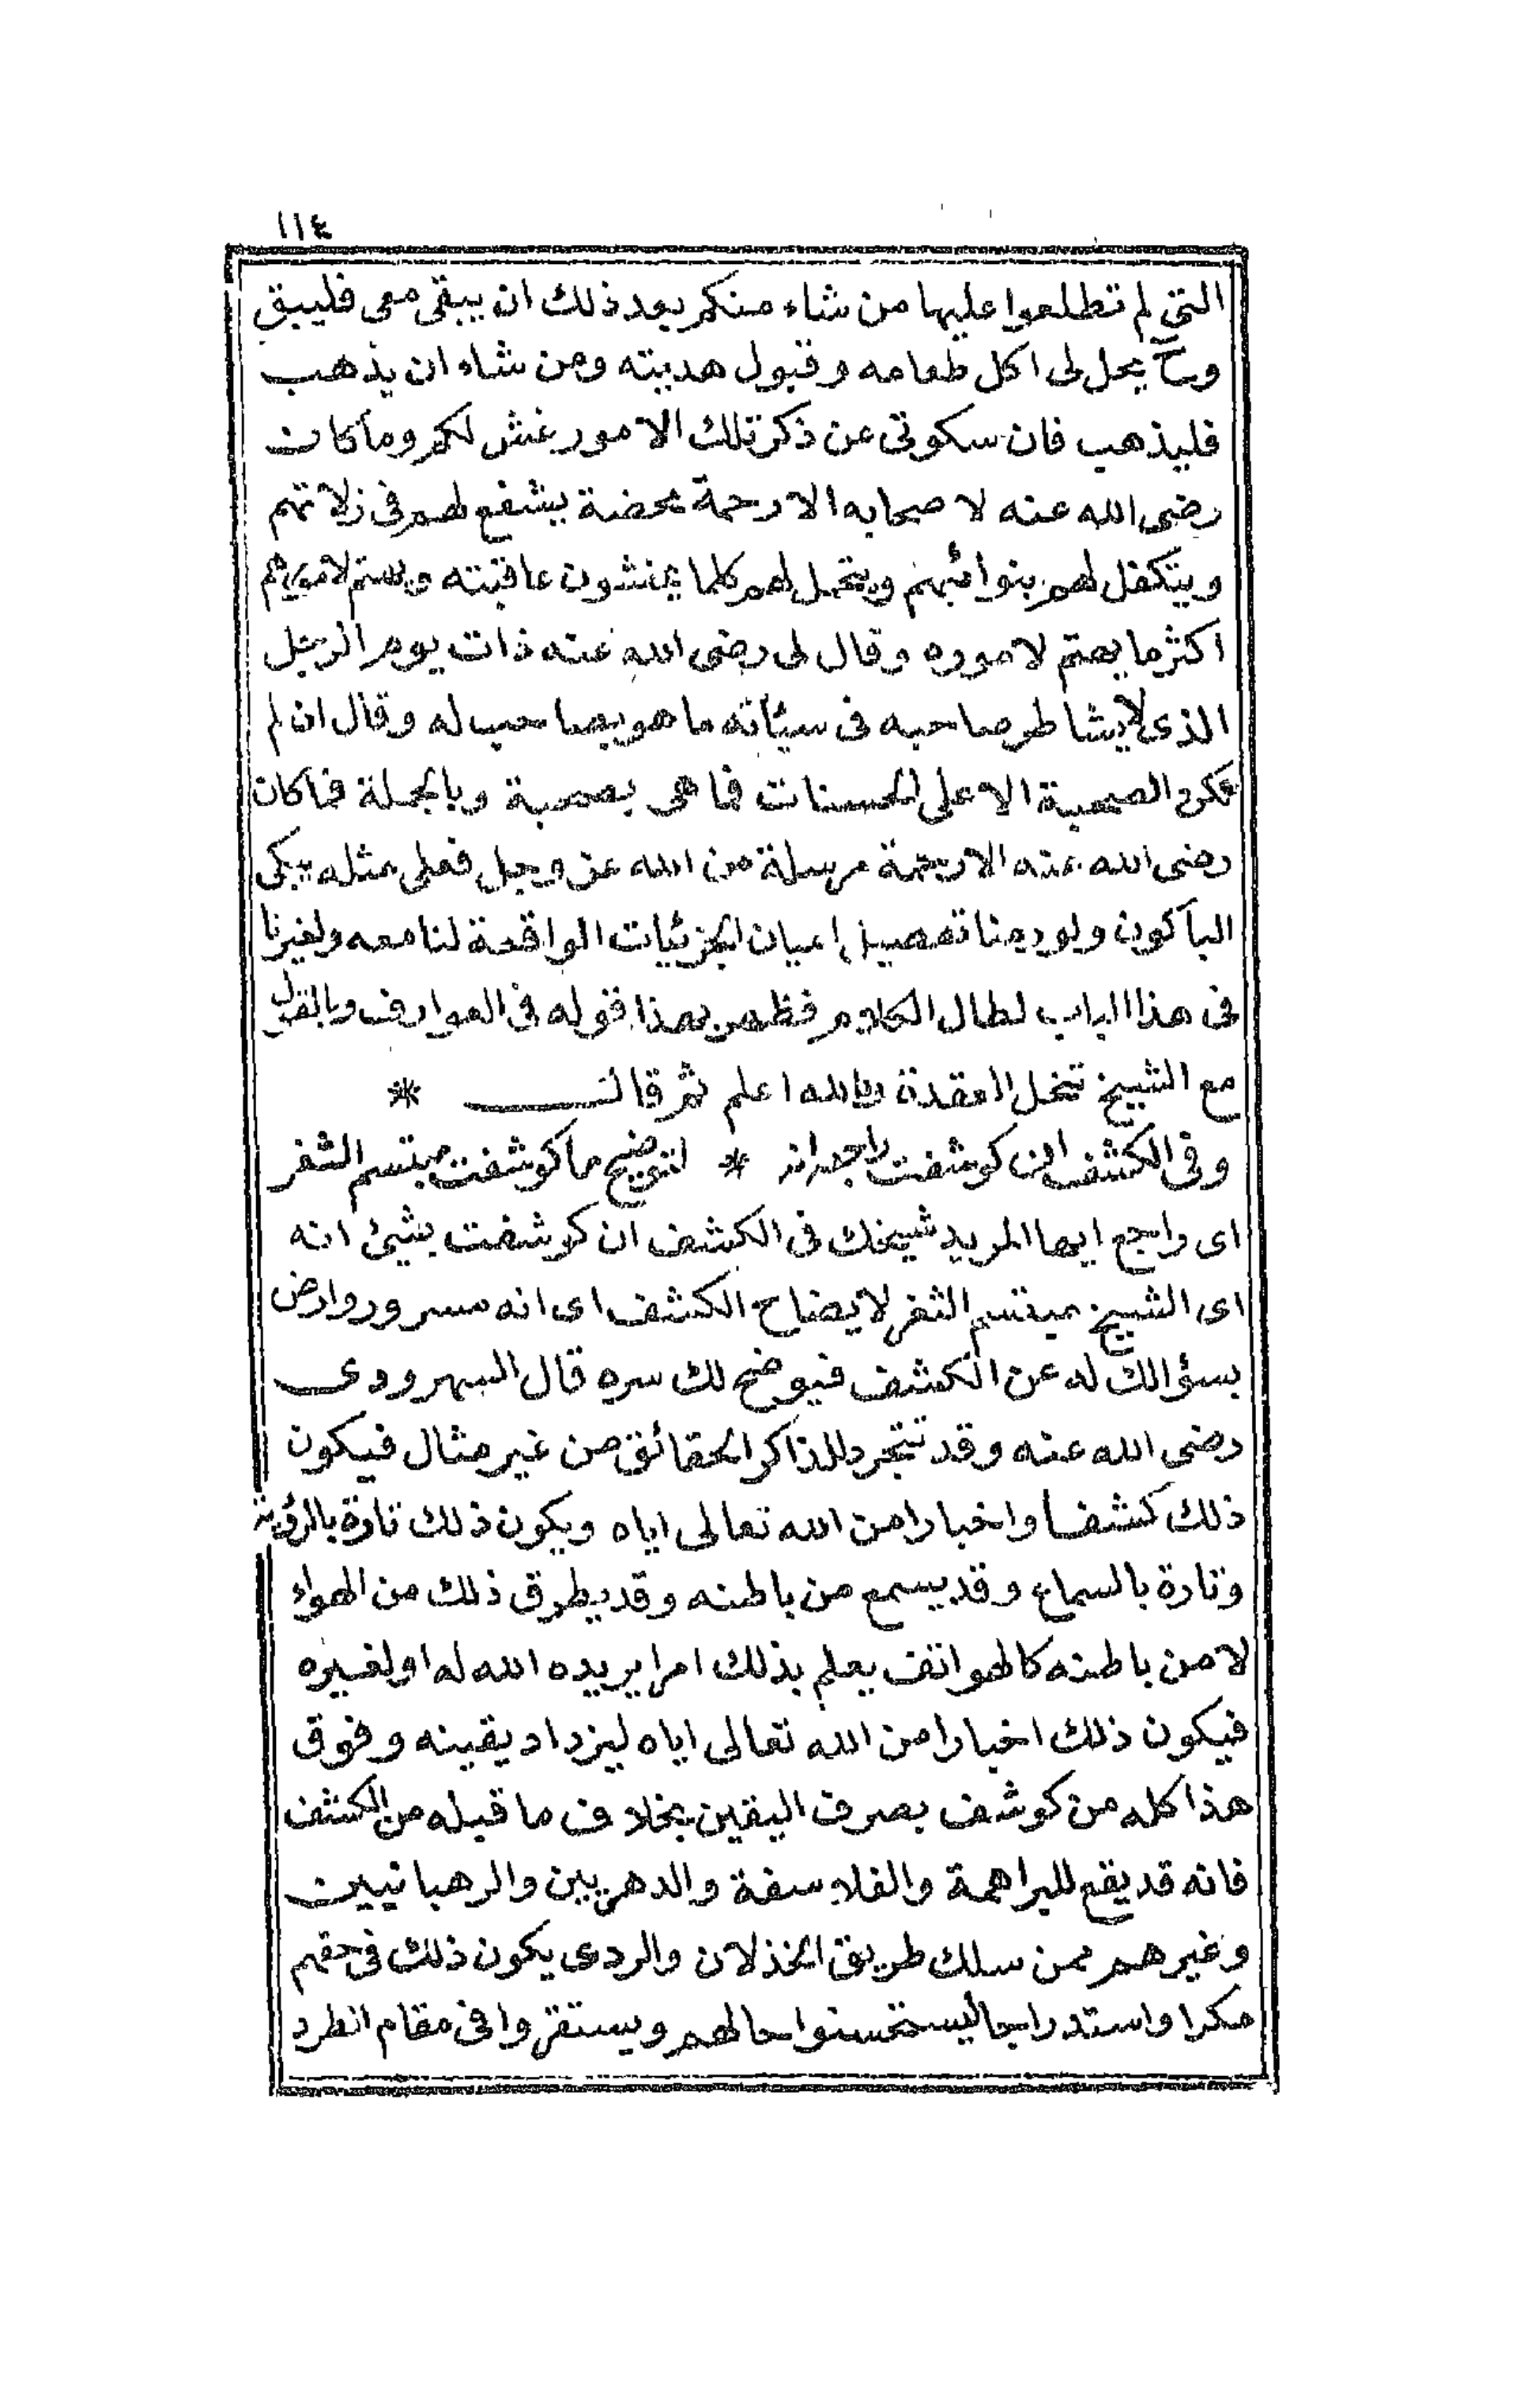 ١١٤
التى لم تطلعوا عليها من شاء منكم بعد ذلك ان يبقى معى فليبق
وح يحل لى اكل طعامه وقبول هديته ومن شاء ان يذهب
فليذهب فان سكوتى عن ذكر تلك الامور غش لكم وما كان
رضى الله عنه لاصحابه الا رحمة محضة يشفع لهم فى زلاتهم
ويتكفل لهم بنوائبهم ويتحمل لهم كلما يخشون عاقبته ويهتم لامورهم
اكثر ما يهتم لاموره وقال لى رضى الله عنه ذات يوم الرجل
الذى لا يشاطر صاحبه فى سيئاته ما هو بصاحب له وقال ان لم
تكن الصحبة الا على الحسنات فما هى بصحبة وبالجملة فما كان
رضى الله عنه الا رحمة مرسلة من الله عز وجل فعلى مثله يبكى
الباكون ولو رمنا تفصيل اعيان الجزئيات الواقعة لنا معه ولغيرنا
فى هذا الباب لطال الكلام فظهر بهذا قوله فى العوارف وبالقول
مع الشيخ تنحل العقدة والله اعلم ثم قال *
وفى الكشف ان كوشفت راجعه انه * لتوضيح ما كوشفت مبتسم الثغر
اى راجع ايها المريد شيخك فى الكشف ان كوشفت بشئ انه
اى الشيخ مبتسم الثغر لايضاح الكشف اى انه مسرور وراض
بسؤالك له عن الكشف فيوضح لك سره قال السهروردى
رضى الله عنه وقد تتجرد للذاكر الحقائق من غير مثال فيكون
ذلك كشفا واخبارا من الله تعالى اياه ويكون ذلك تارة بالرؤية
وتارة بالسماع وقد يسمع من باطنه وقد يطرق ذلك من الهواء
لا من باطنه كالهواتف يعلم بذلك امرا يريده الله له او لغيره
فيكون ذلك اخبارا من الله تعالى اياه ليزداد يقينه وفوق
هذا كله من كوشف بصرف اليقين بخلاف ما قبله من الكشف
فانه قد يقع للبراهمة والفلاسفة والدهريين والرهبانيين
وغيرهم ممن سلك طريق الخذلان والردى يكون ذلك فى حقهم
مكرا واستدراجا ليستحسنوا حالهم ويستقروا فى مقام الطرد